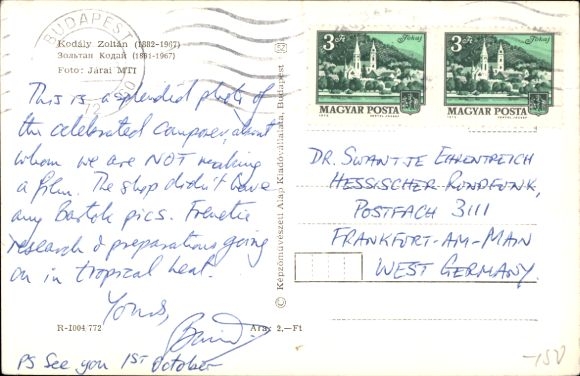 BUDAPEST
Kodály Zoltán (1882-1967)
Зольтан Кодай (1881-1967)
Foto: Járai MTI
This is a splendid photo of
the celebrated composer, about
whom we are NOT making
a film. The shop didn't have
any Bartok pics. Frenetic
research & preparations going
on in tropical heat.
Yours,
R-I004 772
Ára: 2,—Ft
PS See you 1ST October
© Képzőművészeti Alap Kiadóvállalata, Budapest
3 Ft Tokaj
MAGYAR POSTA
3 Ft Tokaj
MAGYAR POSTA
DR. SWANTJE EHRENTREICH
HESSISCHER RUNDFUNK,
POSTFACH 3111
FRANKFURT-AM-MAIN
WEST GERMANY.